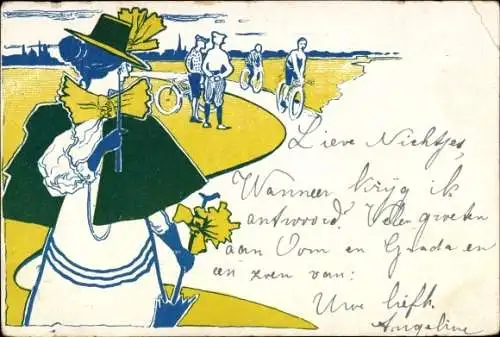 Lieve Nichtjes,
Wanneer krijg ik
antwoord? Velen groeten
aan Oom en Gerada en
een zoen van:
Uwe liefh.
Angeline